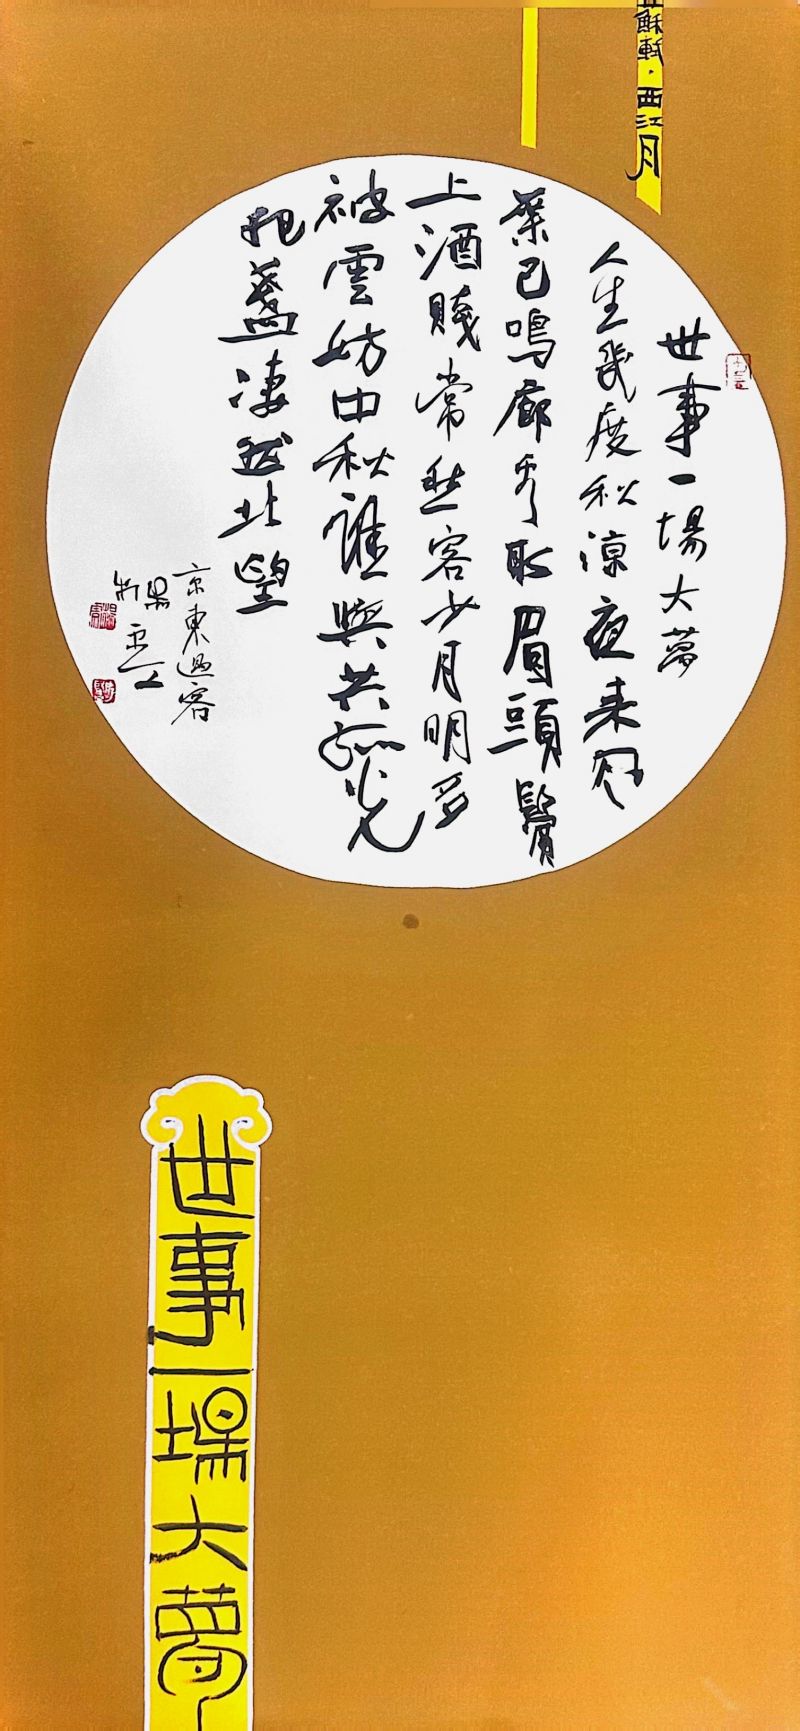 蘇軾·西江月
世事一場大夢
人生幾度秋涼夜来風
葉已鳴廊看取眉頭鬢
上酒賤常愁客少月明多
被雲妨中秋誰與共孤光
把盞凄然北望
京東過客
世事一場大夢